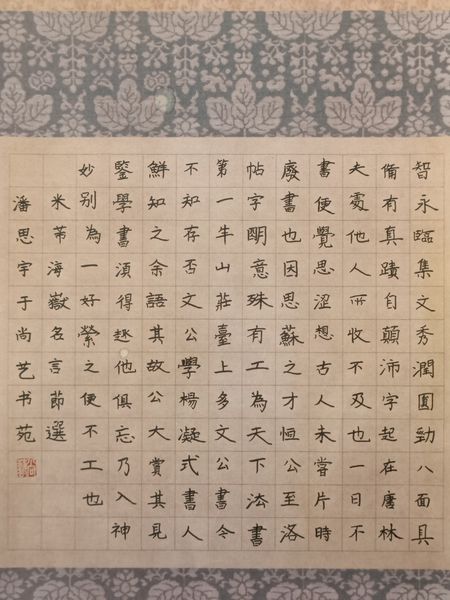 智永臨集文秀潤圓勁八面具
備有真蹟自顛沛字起在唐林
夫處他人所收不及也一日不
書便覺思澀想古人未嘗片時
廢書也因思蘇之才恒公至洛
帖字明意殊有工為天下法書
第一牛山莊臺上多文公書令
不知存否文公學楊凝式書人
鮮知之余語其故公大賞其見
鑒學書須得趣他俱忘乃入神
妙别為一好縈之便不工也
米芾海嶽名言節選
潘思宇于尚艺书苑